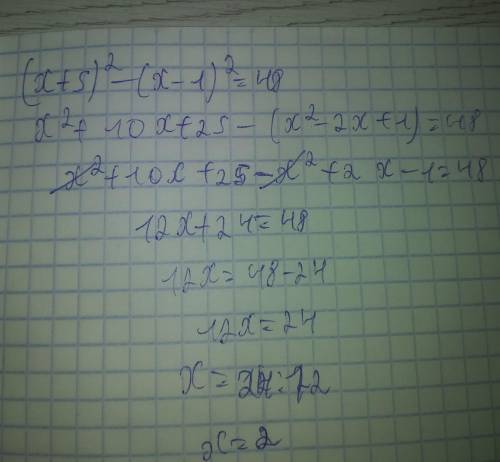 (x+5)²-(x-1)²=48
x²+10x+25-(x²-2x+1)=48
x²+10x+25-x²+2x-1=48
12x+24=48
12x=48-24
12x=24
x=24:12
x=2